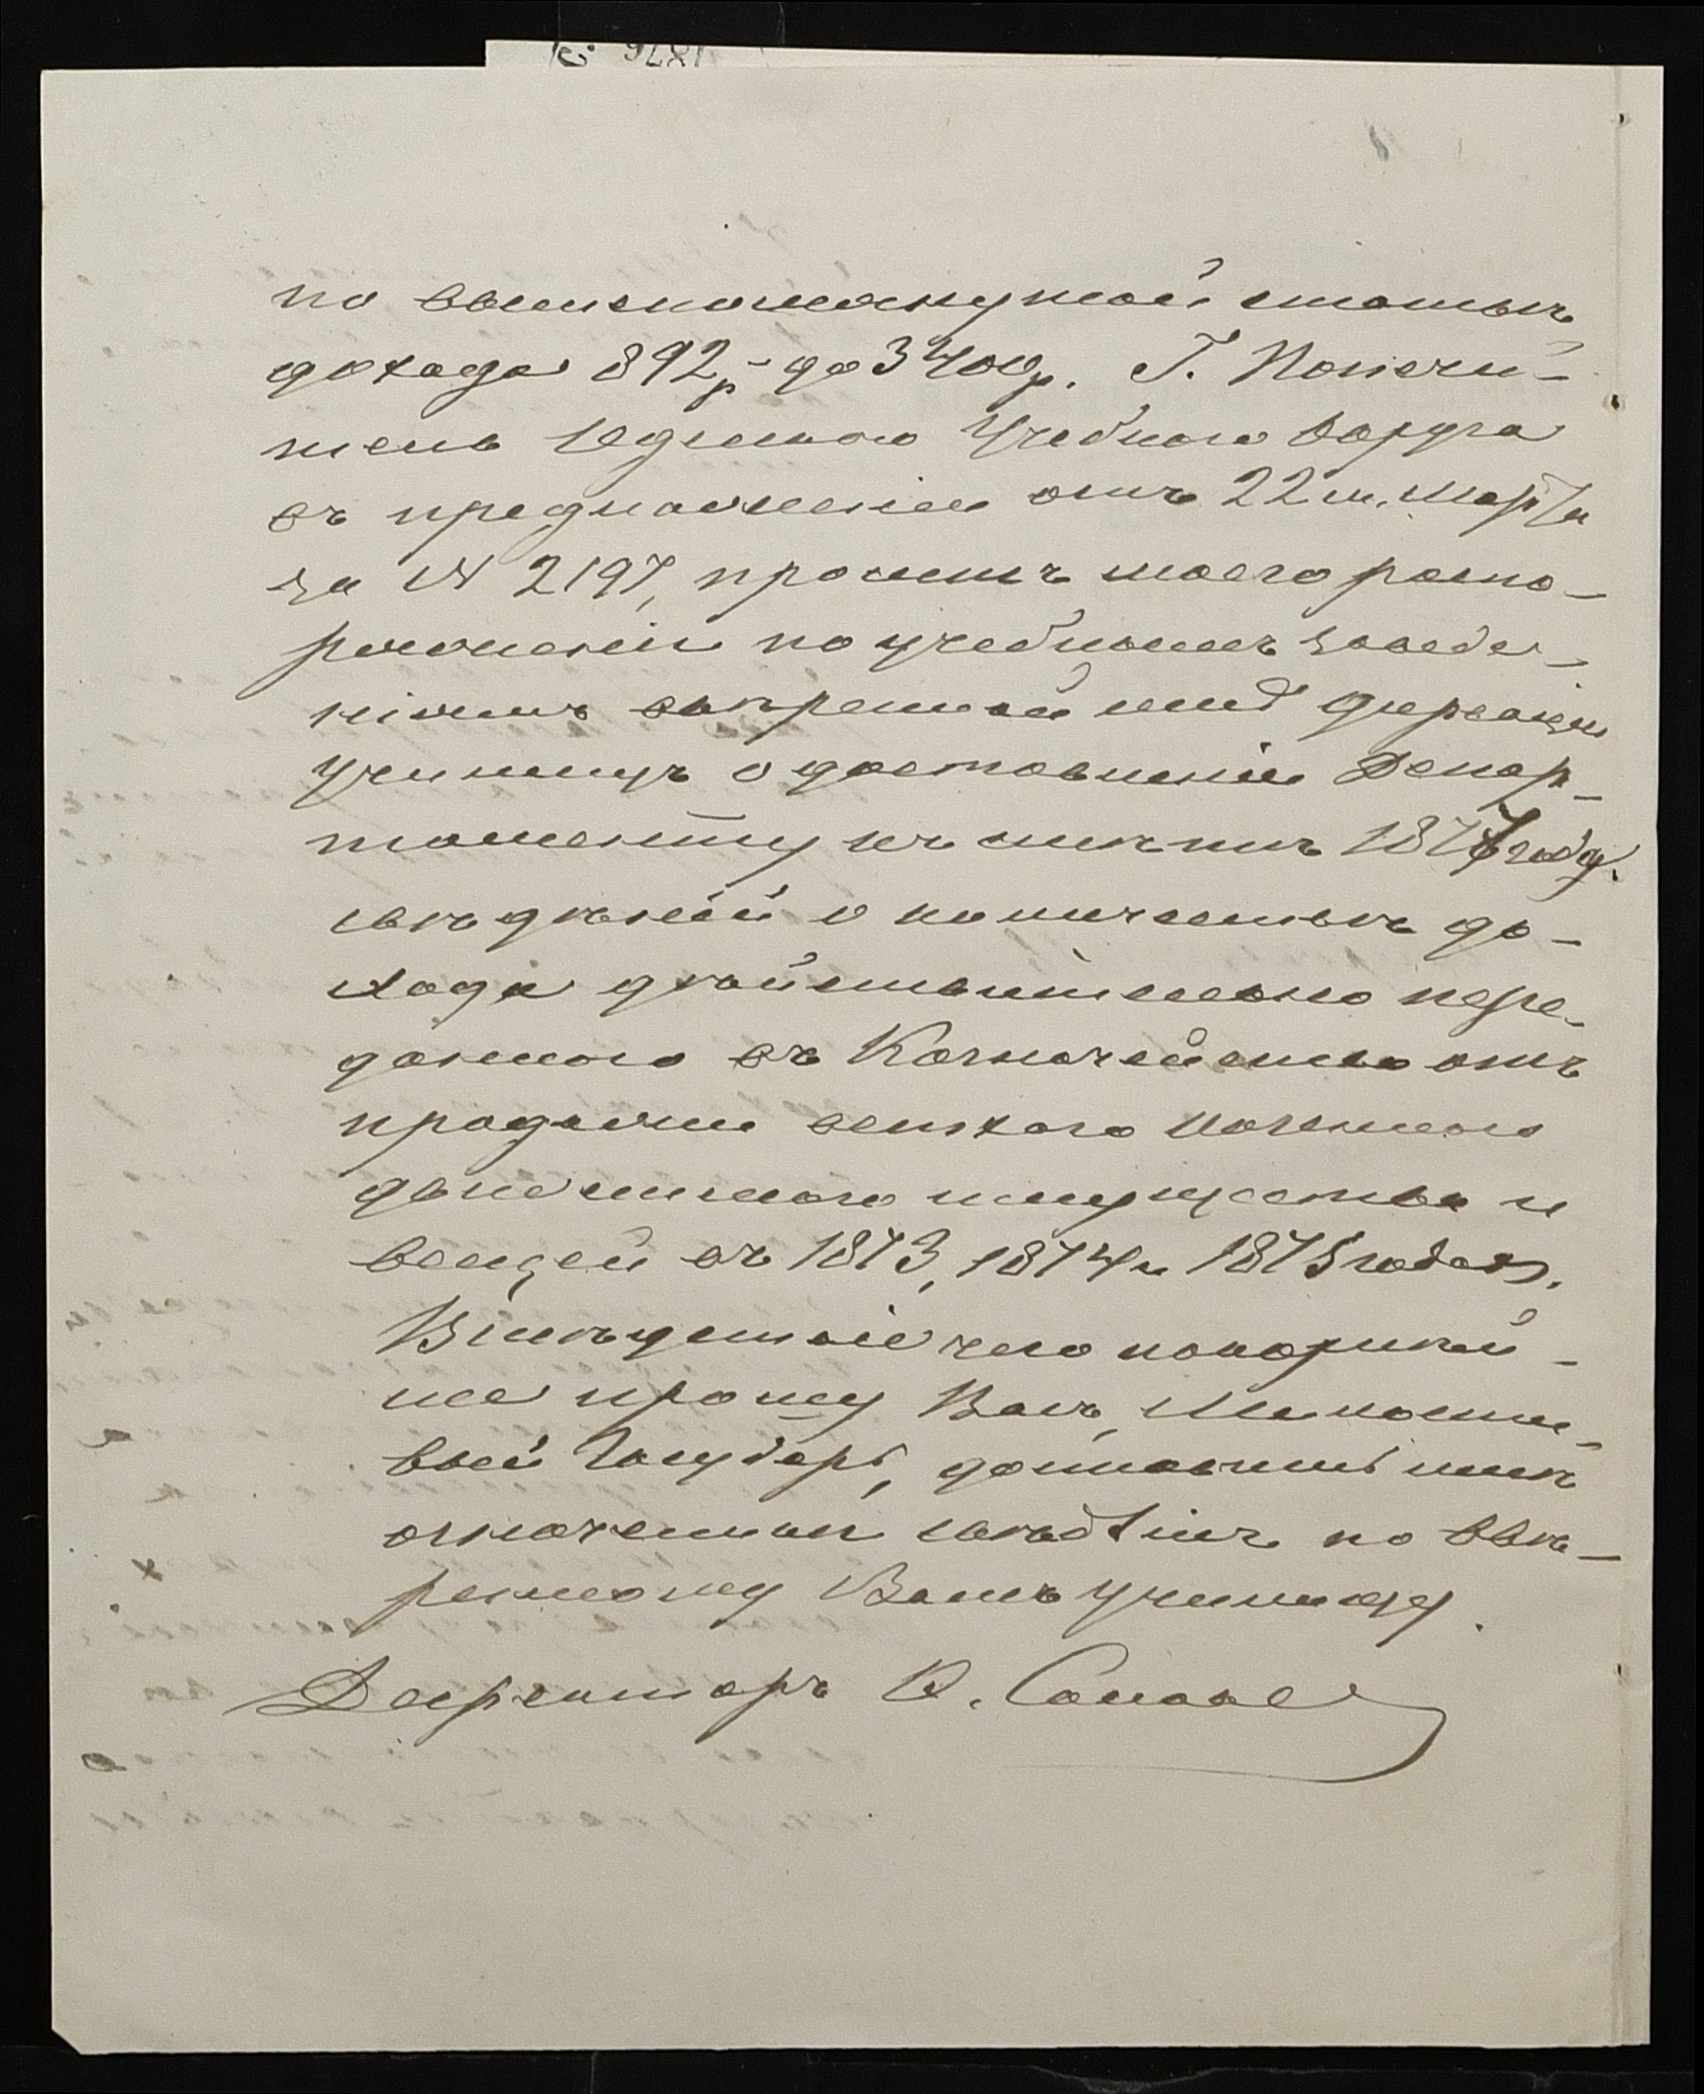 по вышепомянутой статьѣ
дохода 892 р. до 3400 р. Г. Попечи-
тель Одескаго Учебнаго Округа
въ предложеніи отъ 22 м. Марта
за № 2197, проситъ моего распо-
ряженія по учебнымъ заведе-
ніямъ ввѣренной мнѣ дирекціи
училищъ о доставленіи Депар-
таменту къ смѣтѣ 1877 году.
свѣдѣній о количествѣ до-
хода дѣйствительно пере-
даннаго въ Казначейство отъ
продажи ветхаго казеннаго
движимаго имущества и
вещей въ 1873, 1874 и 1875 годахъ.
Вслѣдствіе чего покорнѣй-
ше прошу Васъ, Милости-
вый Государь, доставить мнѣ
означенныя свѣдѣнія по ввѣ-
ренному Вамъ училищу.
Директоръ